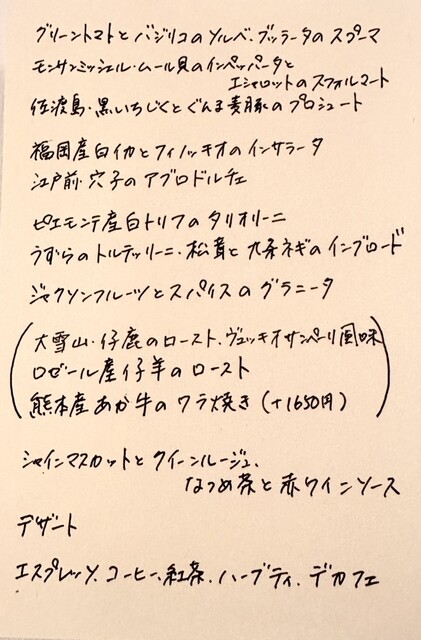 グリーントマトとバジリコのソルベ、ブッラータのスプーマ
モンサンミッシェル・ムール貝のインペパータと
エシャロットのスフォルマート
佐渡島・黒いちじくとぐんま麦豚のプロシュート
福岡産白イカとフィノッキオのインサラータ
江戸前・穴子のアグロドルチェ
ピエモンテ産白トリフのタリオリーニ
うずらのトルテッリーニ・松茸と九条ネギのインブロード
ジャクソンフルーツとスパイスのグラニータ
大雪山・仔鹿のロースト、ヴェッキオサンペーリ風味
ロゼール産仔羊のロースト
熊本産あか牛のワラ焼き (+1650円)
シャインマスカットとクイーンルージュ、
なつめ茶と赤ワインソース
デザート
エスプレッソ、コーヒー、紅茶、ハーブティ、デカフェ